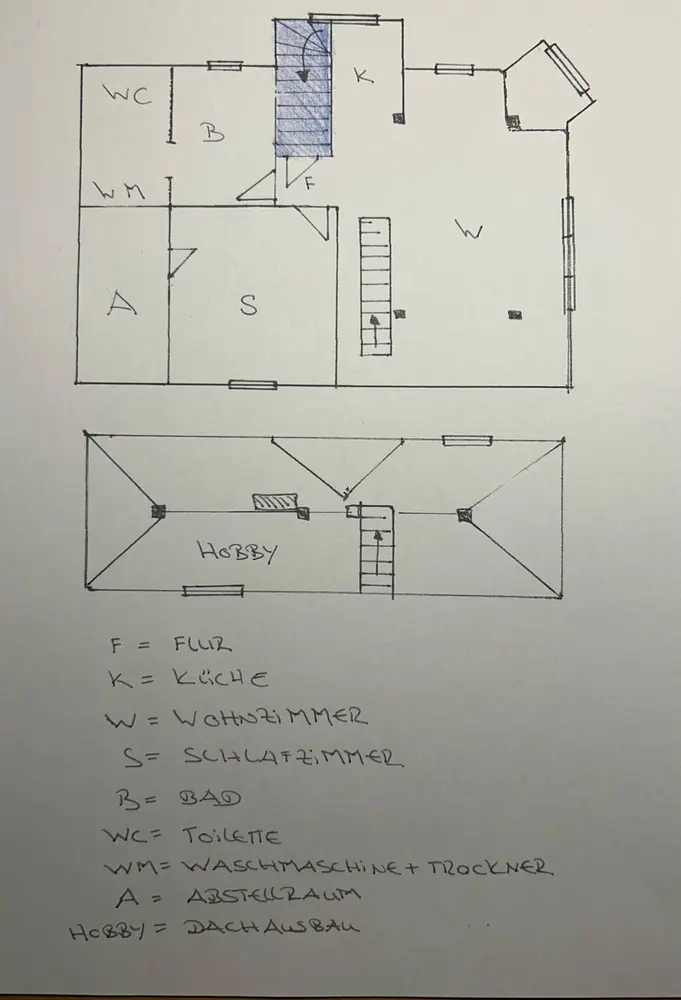 K
WC
B
F
WM
W
A
S
HOBBY
F = FLUR
K = KÜCHE
W = WOHNZIMMER
S = SCHLAFZIMMER
B = BAD
WC = TOILETTE
WM = WASCHMASCHINE + TROCKNER
A = ABSTELLRAUM
HOBBY = DACHAUSBAU